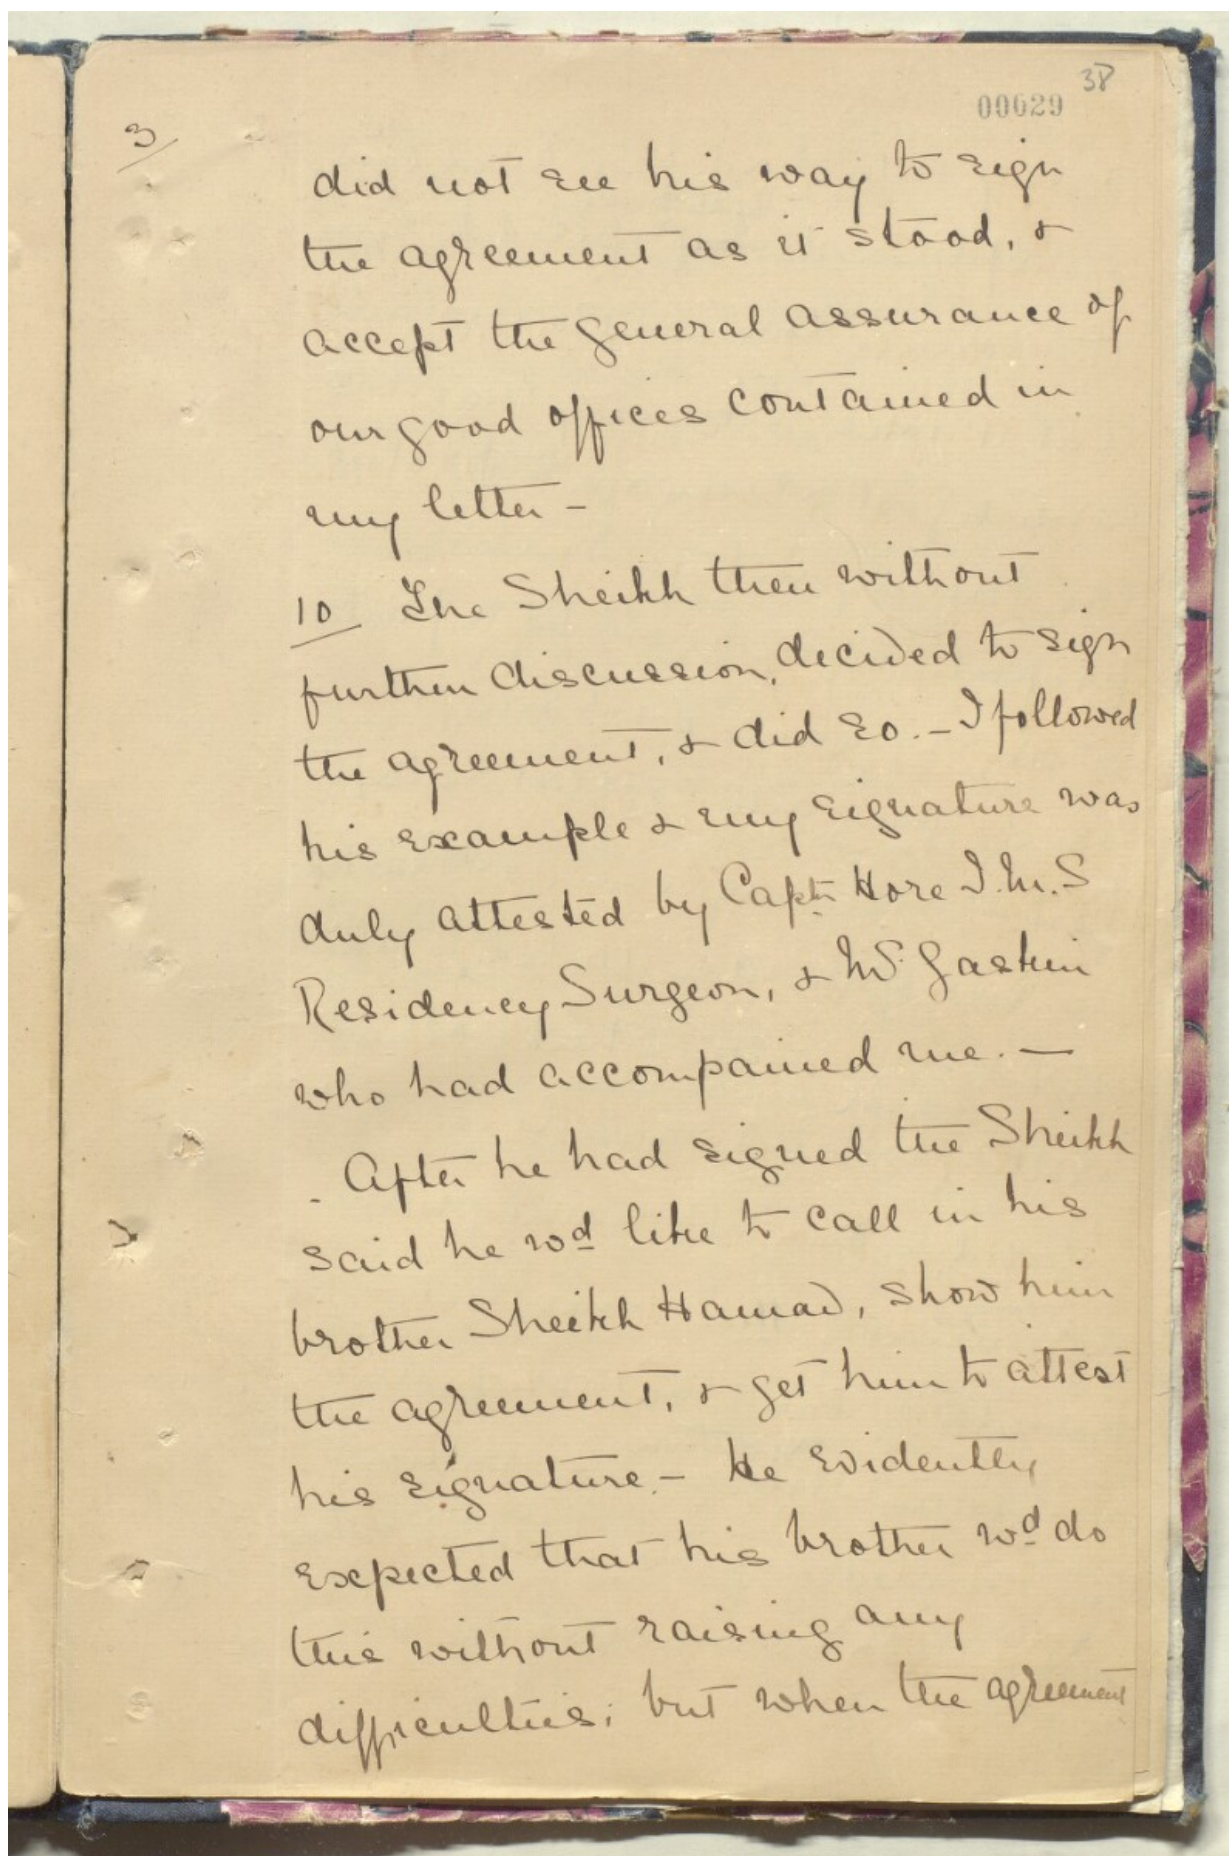 38
00029
3/
did not see his way to sign
the agreement as it stood, &
accept the general assurance of
our good offices contained in
my letter –
10 The Sheikh then without
further discussion, decided to sign
the agreement, & did so. – I followed
his example & my signature was
duly attested by Captn Hore I.M.S
Residency Surgeon, & Mr Gaskin
who had accompained me. —
. After he had signed the Sheikh
said he wd like to call in his
brother Sheikh Hamad, show him
the agreement, & get him to attest
his signature. – He evidently
expected that his brother wd do
this without raising any
difficulties; but when the agreement